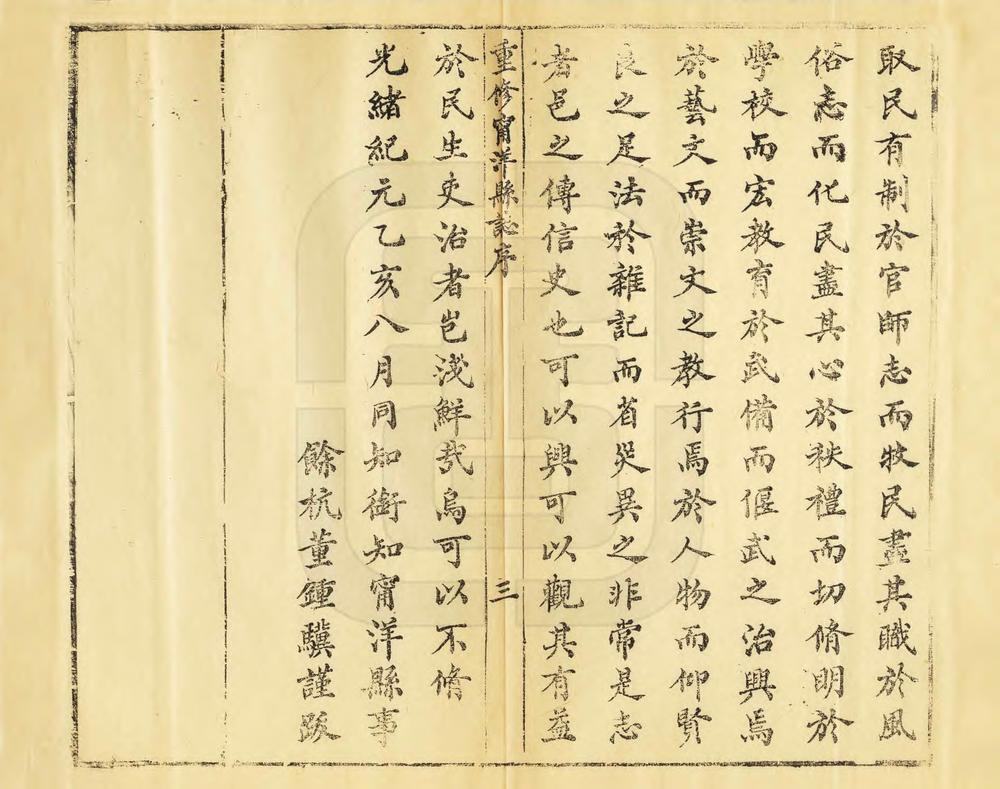 取民有制於官師志而牧民盡其職於風
俗志而化民盡其心於秩禮而切脩明於
學校而宏教育於武備而偃武之治興焉
於藝文而崇文之教行焉於人物而仰賢
良之足法於雜記而省災異之非常是志
者邑之傳信史也可以興可以觀其有益
重修甯洋縣誌序 三
於民生吏治者豈淺鮮哉烏可以不脩
光緒紀元乙亥八月同知銜知甯洋縣事
餘杭董鍾驥謹跋